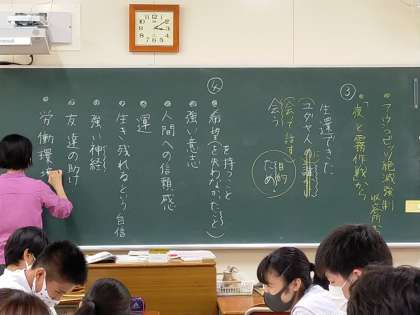 ・アウシュビッツ絶滅強制収容所
・「夜と霧作戦」から
③
生還できた
ユダヤ人の
会って話
会う
目的
ため
④
・希望
を持つこと
(を失わなかったこと)
・強い意志
・人間への信頼感
・運
・生き残れるという自信
・強い神経
・友達の助け
・労働環境